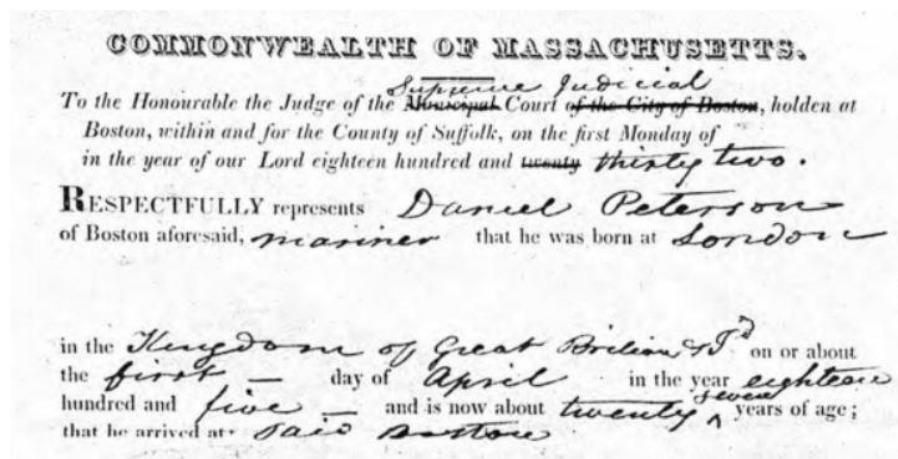 COMMONWEALTH OF MASSACHUSETTS.
Supreme Judicial
To the Honourable the Judge of the Municipal Court of the City of Boston, holden at
Boston, within and for the County of Suffolk, on the first Monday of
in the year of our Lord eighteen hundred and twenty thirty two.
RESPECTFULLY represents Daniel Peterson
of Boston aforesaid, mariner that he was born at London
in the Kingdom of Great Britian & Id on or about
the first — day of April in the year eighteen
hundred and five — and is now about twenty seven years of age;
that he arrived at said Boston